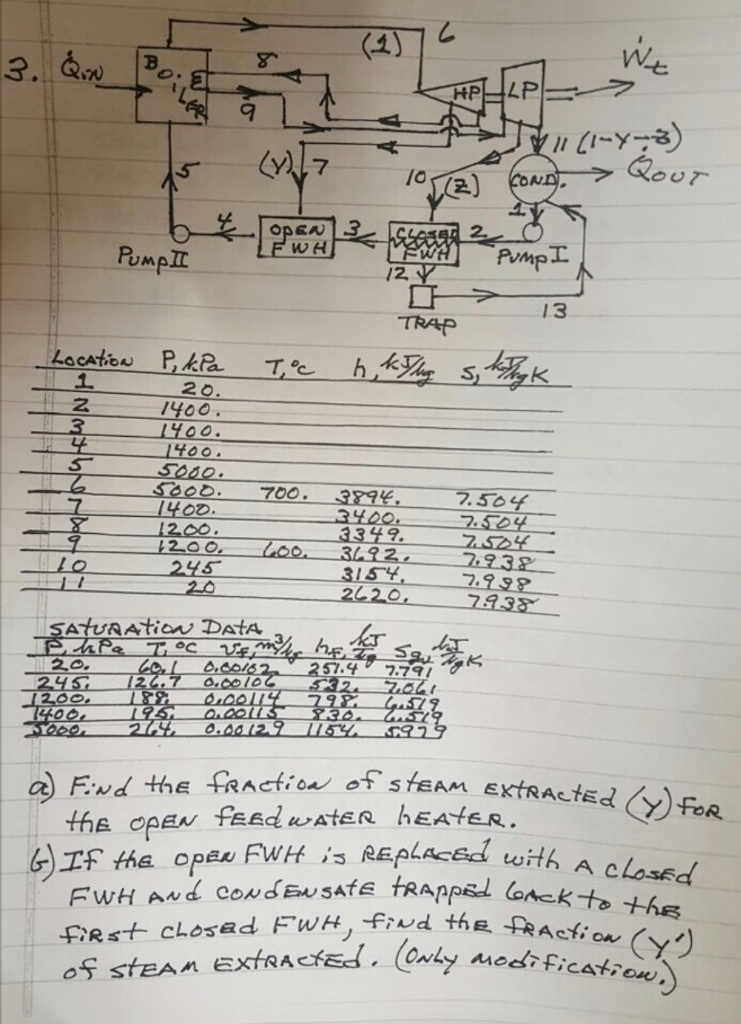 3. Q̇IN
BOiLER
8
9
(1)
6
HP
LP
Ẇt
5
(Y)
7
10
(Z)
11 (1-Y-Z)
COND.
Q̇OUT
1
PUMP II
4
OPEN FWH
3
CLOSED FWH
2
PUMP I
12
TRAP
13
LOCATION P, kPa T, °C h, kJ/kg s, kJ/kgK
1 20.
2 1400.
3 1400.
4 1400.
5 5000.
6 5000. 700. 3894. 7.504
7 1400. 3400. 7.504
8 1200. 3349. 7.504
9 1200. 600. 3692. 7.938
10 245 3154. 7.938
11 20 2620. 7.938
SATURATION DATA
P, kPa T, °C vf, m³/kg hf, kJ/kg sg, kJ/kgK
20. 60.1 0.00102 251.4 7.791
245. 126.7 0.00106 532. 7.061
1200. 188. 0.00114 798. 6.519
1400. 195. 0.00115 830. 6.519
5000. 264. 0.00129 1154. 5.979
a) FiNd tHE FRACtiON of stEAM EXtRACtEd (Y) FOR
tHE OPEN fEEdWATER hEATER.
b) If tHE OPEN FWH is REPLACEd with A CLOSEd
FWH ANd CONdENSATE tRAPPEd bACK to tHE
fiRst CLOSEd FWH, fiNd tHE fRACtiON (Y')
of stEAM EXtRACtEd. (ONLY MOdifiCAtiON.)